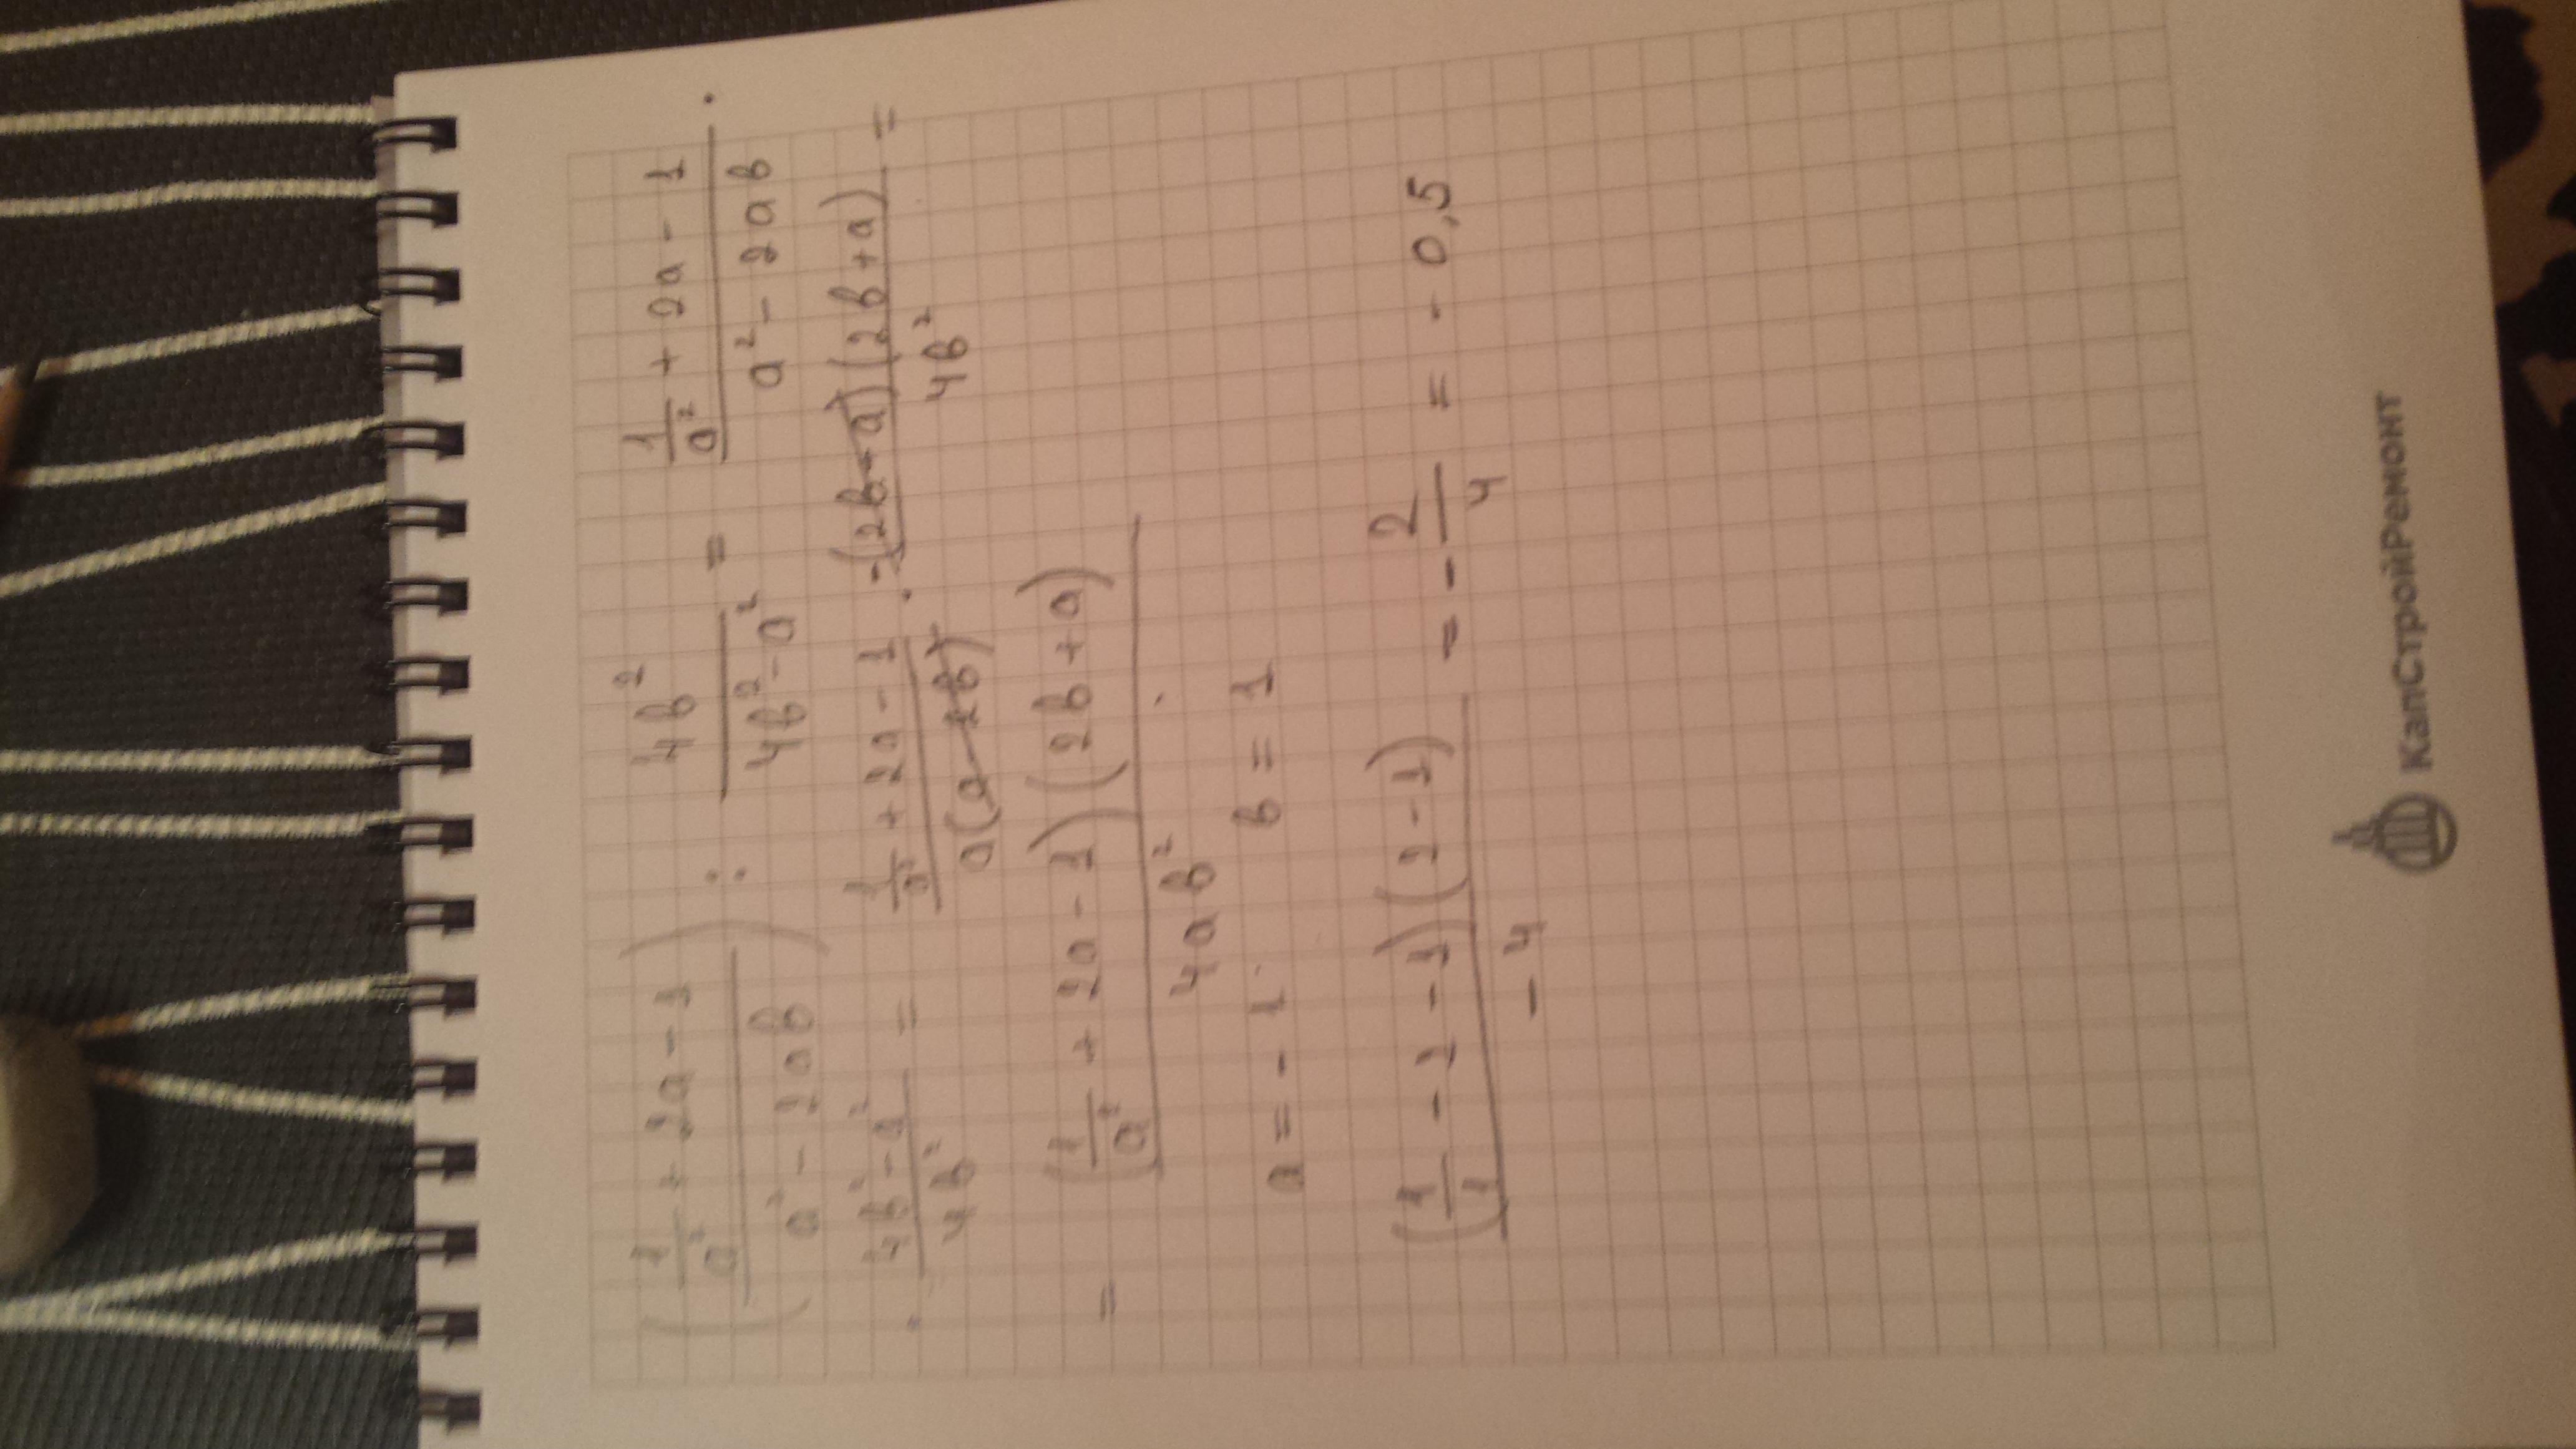 (1/a² + 2a - 1)/(a² - 2ab) : 4b²/(4b² - a²) = (1/a² + 2a - 1)/(a² - 2ab) ·
· (4b² - a²)/4b² = (1/a² + 2a - 1)/a(a - 2b) · -(2b - a)(2b + a)/4b² =
= (1/a² + 2a - 1)(2b + a)/4ab²
a = -1 b = 1
(1/1 - 2 - 1)(2 - 1)/-4 = - 2/4 = - 0,5
КапСтройРемонт